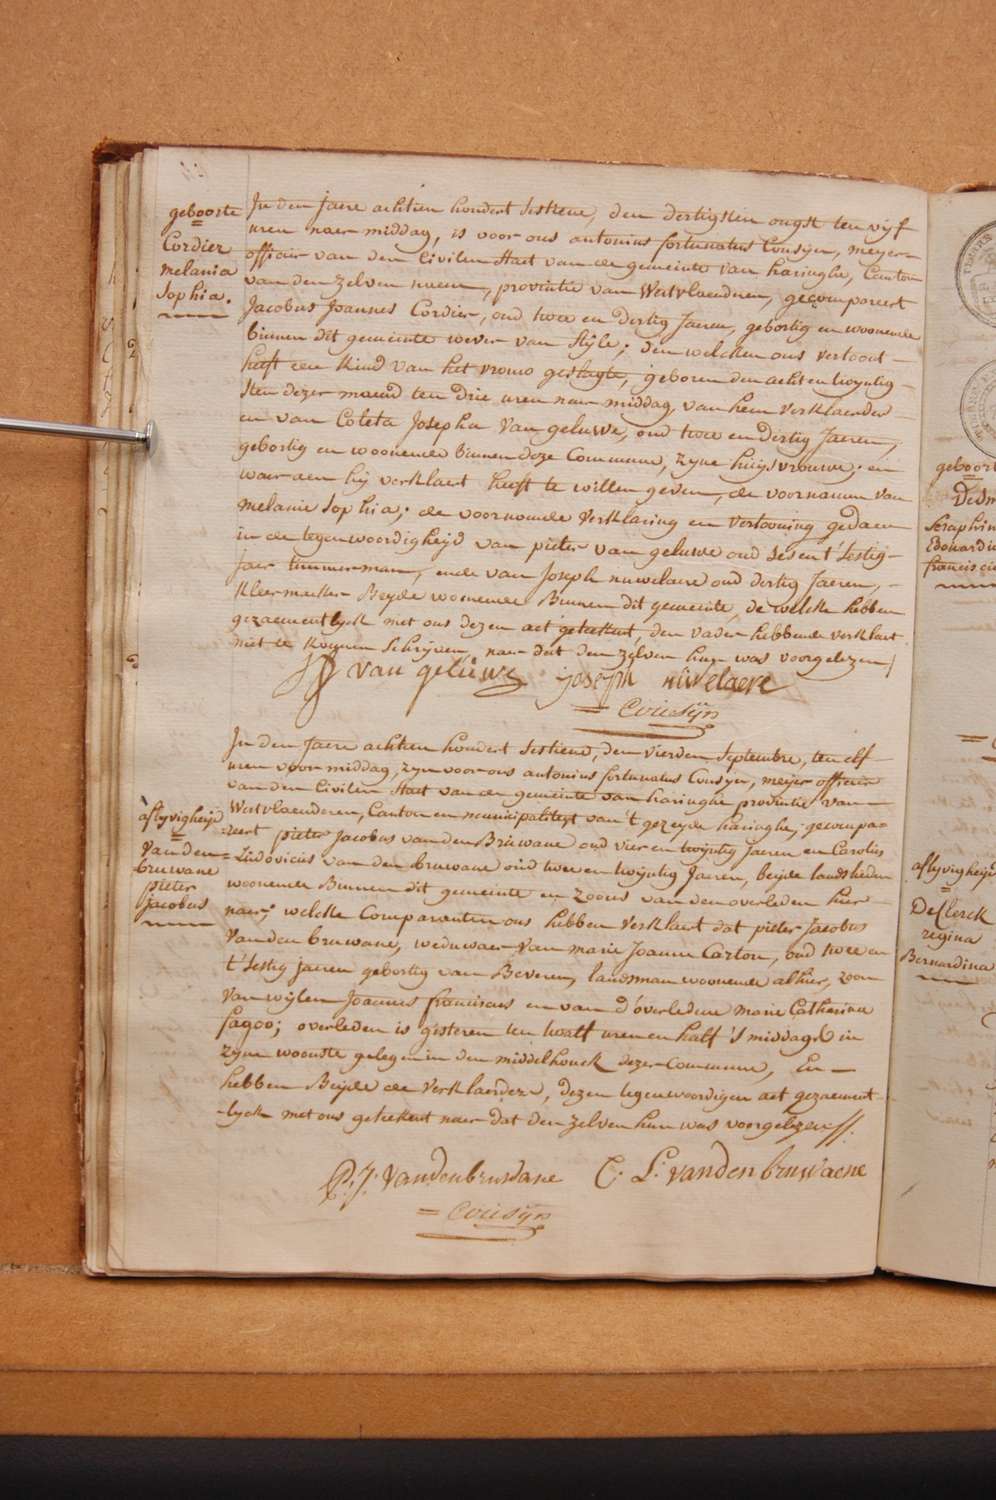 geboorte
=
Cordier
melania
Sophia.
In den jaere achtien hondert sestiene, den dertigsten ougst ten vijf
uren naer middag, is voor ons antonius fortunatus Cousyn, meyer
officier van den Civilen Staet van de gemeinte van haringhe, Canton
van den zelven naem, provintie van Westvlaenderen, gecompareert
Jacobus Joannes Cordier, oud twee en dertig Jaeren, gebortig en woonende
binnen dit gemeinte wever van Stijle; den welcken ons vertoont
heeft een kind van het vrouw geslagte, geboren den acht en twyntig
sten dezer maend ten drie uren naer middag, van hem verklaerder
en van Coleta Josepha Van geluwe, oud twee en dertig Jaeren,
gebortig en woonende binnen deze Commune, zyne huijsvrouwe; en
waer aen hij verklaert heeft te willen geven, de voornamen van
melanie Sophia; de voornoemde verklaring en vertooning gedaen
in de tegenwoordigheijd van pieter van geluwe oud seven t'sestig
jaer timmerman, ende van Joseph nuwelaere oud dertig Jaeren,
kleermaeker Beyde woonende Binnen dit gemeinte, de welcke hebben
gezaementlyck met ons dezen act geteekent, den vader hebbende verklaert
niet te konnen Schrijven, naer dat den zelven hun was voorgelezen/
van geluwe joseph nuwelaere
= Cousijn
aflyvigheijd
=
Van den
bruwane
pieter
jacobus
In den Jaere achtien hondert Sestiene, den vierden Septembre, ten elf
uren voor middag, zyn voor ons antonius fortunatus Cousyn, meyer officier
van den Civilen Staet van de gemeinte van haringhe provintie van
Westvlaenderen, Canton en municipaliteyt van 't gezeyde haringhe, gecompa=
=reert pieter Jacobus van den Bruwane oud vier en twyntig Jaeren en Carolus
Ludovicus van den bruwane oud twee en twyntig Jaeren, beyde landslieden
woonende Binnen dit gemeinte en zoons van den overleden hier
naer; welcke Comparanten ons hebben verklaert dat pieter Jacobus
Vanden bruwane, weduwaer van marie Joanne Carton, oud twee en
t'sestig jaeren gebortig van Beveren, landsman woonende alhier, zoon
van wylen Joannes franciscus en van d'overledene marie Catharine
fagoo; overleden is gisteren ten twalf uren en half 's middags in
zyne woonste gelegen in den middelhouck dezer Commune, En
hebben Beyde de Verklaerders, dezen tegenwoordigen act gezaement
-lyck met ons geteekent naer dat den zelven hun was voorgelezen//.
P: J: Vandenbruwane C: L: vanden bruwaene
= Cousijn
geboort
Desm
Seraphin
Edouard
francis
aflyvigheijd
=
DeClerck
regina
Bernardina